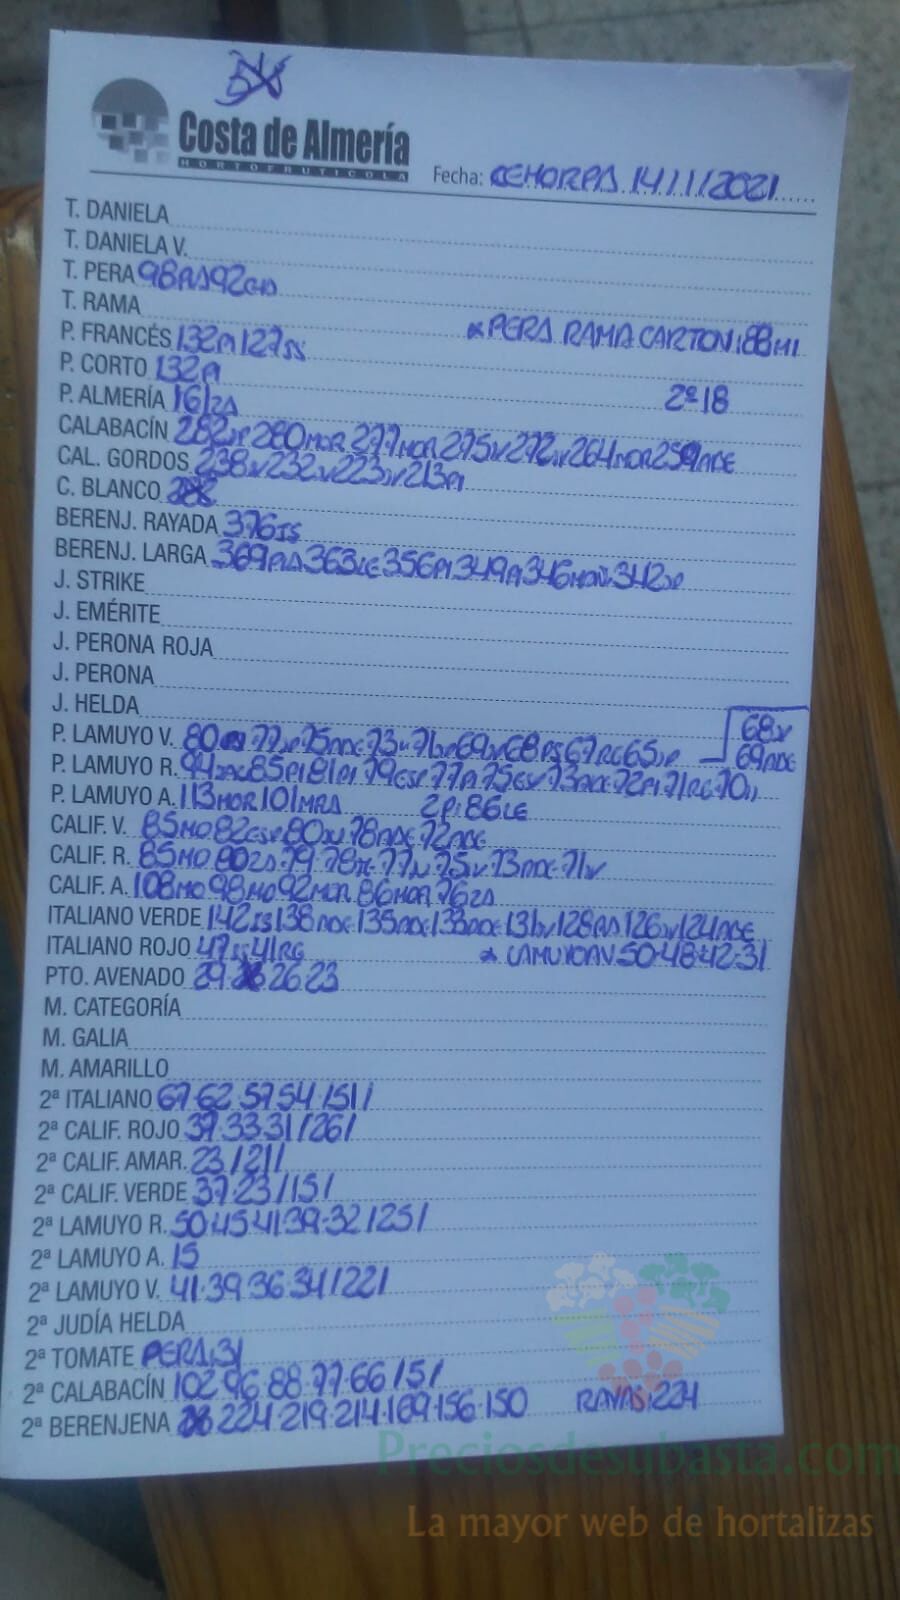 Costa de Almería
HORTOFRUTICOLA
Fecha: CEHORPA 14/1/2021
T. DANIELA
T. DANIELA V.
T. PERA 98 92
T. RAMA
* PERA RAMA CARTON: 88 MI
P. FRANCÉS 132PI 127JS
P. CORTO 132PI
P. ALMERÍA 161ZA 2ª 18
CALABACÍN 282 280MOR 277MOR 275 272 264MOR 259ADE
CAL. GORDOS 238 232 223 213PI
C. BLANCO
BERENJ. RAYADA 376IS
BERENJ. LARGA 369 363LE 356PI 349PI 346 342
J. STRIKE
J. EMÉRITE
J. PERONA ROJA
J. PERONA
J. HELDA
P. LAMUYO V. 80 77 75ADE 73 71 69 68 67RG 65 68 69ADE
P. LAMUYO R. 94ADE 85PI 81PI 79ESP 77PI 75ESP 73ADE 72PI 71RG 70
P. LAMUYO A. 113MOR 101MRA 2P: 86LE
CALIF. V. 85MO 82ESP 80 78ADE 72ADE
CALIF. R. 85MO 80ZA 79 78 77 75 73ADE 71
CALIF. A. 108MO 98MO 92MOR 86MOR 76ZA
ITALIANO VERDE 142 138ADE 135ADE 133ADE 131 128 126 124ADE
ITALIANO ROJO 47 41RG * LAMUYO AV 50·48·42·31
PTO. AVENADO 29 26 23
M. CATEGORÍA
M. GALIA
M. AMARILLO
2ª ITALIANO 67·62·57·54 /51/
2ª CALIF. ROJO 37·33·31/26/
2ª CALIF. AMAR. 23/21/
2ª CALIF. VERDE 37·23/15/
2ª LAMUYO R. 50·45·41·39·32/25/
2ª LAMUYO A. 15
2ª LAMUYO V. 41·39·36·34/22/
2ª JUDÍA HELDA
2ª TOMATE PERA: 31
2ª CALABACÍN 102·96·88·77·66/5/
2ª BERENJENA 224·219·214·169·156·150 RAYAS: 224
Preciosdesubasta.com
La mayor web de hortalizas